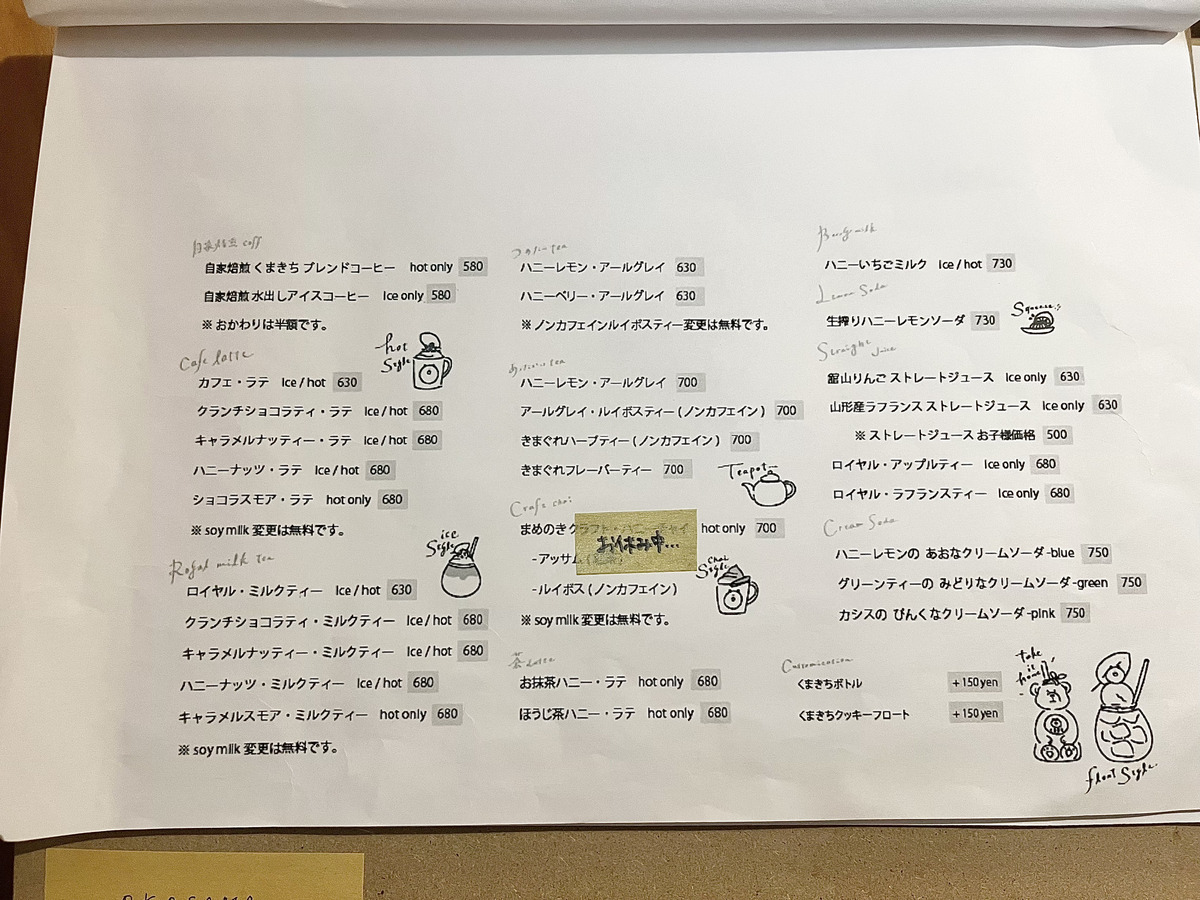 自家焙煎 coff
自家焙煎 くまきち ブレンドコーヒー hot only 580
自家焙煎 水出しアイスコーヒー Ice only 580
※ おかわりは半額です。
hot Style
Cafe latte
カフェ・ラテ Ice / hot 630
クランチショコラティ・ラテ Ice / hot 680
キャラメルナッティー・ラテ Ice / hot 680
ハニーナッツ・ラテ Ice / hot 680
ショコラスモア・ラテ hot only 680
※ soy milk 変更は無料です。
ice Style
Royal milk tea
ロイヤル・ミルクティー Ice / hot 630
クランチショコラティ・ミルクティー Ice / hot 680
キャラメルナッティー・ミルクティー Ice / hot 680
ハニーナッツ・ミルクティー Ice / hot 680
キャラメルスモア・ミルクティー hot only 680
※ soy milk 変更は無料です。
つめたい tea
ハニーレモン・アールグレイ 630
ハニーベリー・アールグレイ 630
※ ノンカフェインルイボスティー変更は無料です。
あったかい tea
ハニーレモン・アールグレイ 700
アールグレイ・ルイボスティー ( ノンカフェイン ) 700
きまぐれハーブティー ( ノンカフェイン ) 700
きまぐれフレーバーティー 700
Teapot
Craft chai
まめのきクラフト・ハニーチャイ hot only 700
お休み中...
- アッサム
- ルイボス ( ノンカフェイン )
chai Style
※ soy milk 変更は無料です。
茶 Latte
お抹茶ハニー・ラテ hot only 680
ほうじ茶ハニー・ラテ hot only 680
milk
ハニーいちごミルク Ice / hot 730
Lemon Soda
生搾りハニーレモンソーダ 730
Squeeze!!
Straight Juice
舘山りんご ストレートジュース Ice only 630
山形産ラフランス ストレートジュース Ice only 630
※ ストレートジュース お子様価格 500
ロイヤル・アップルティー Ice only 680
ロイヤル・ラフランスティー Ice only 680
Cream Soda
ハニーレモンの あおなクリームソーダ -blue 750
グリーンティーの みどりなクリームソーダ -green 750
カシスの ぴんくなクリームソーダ -pink 750
Customization
くまきちボトル + 150 yen
くまきちクッキーフロート + 150 yen
take it home!
float Style.